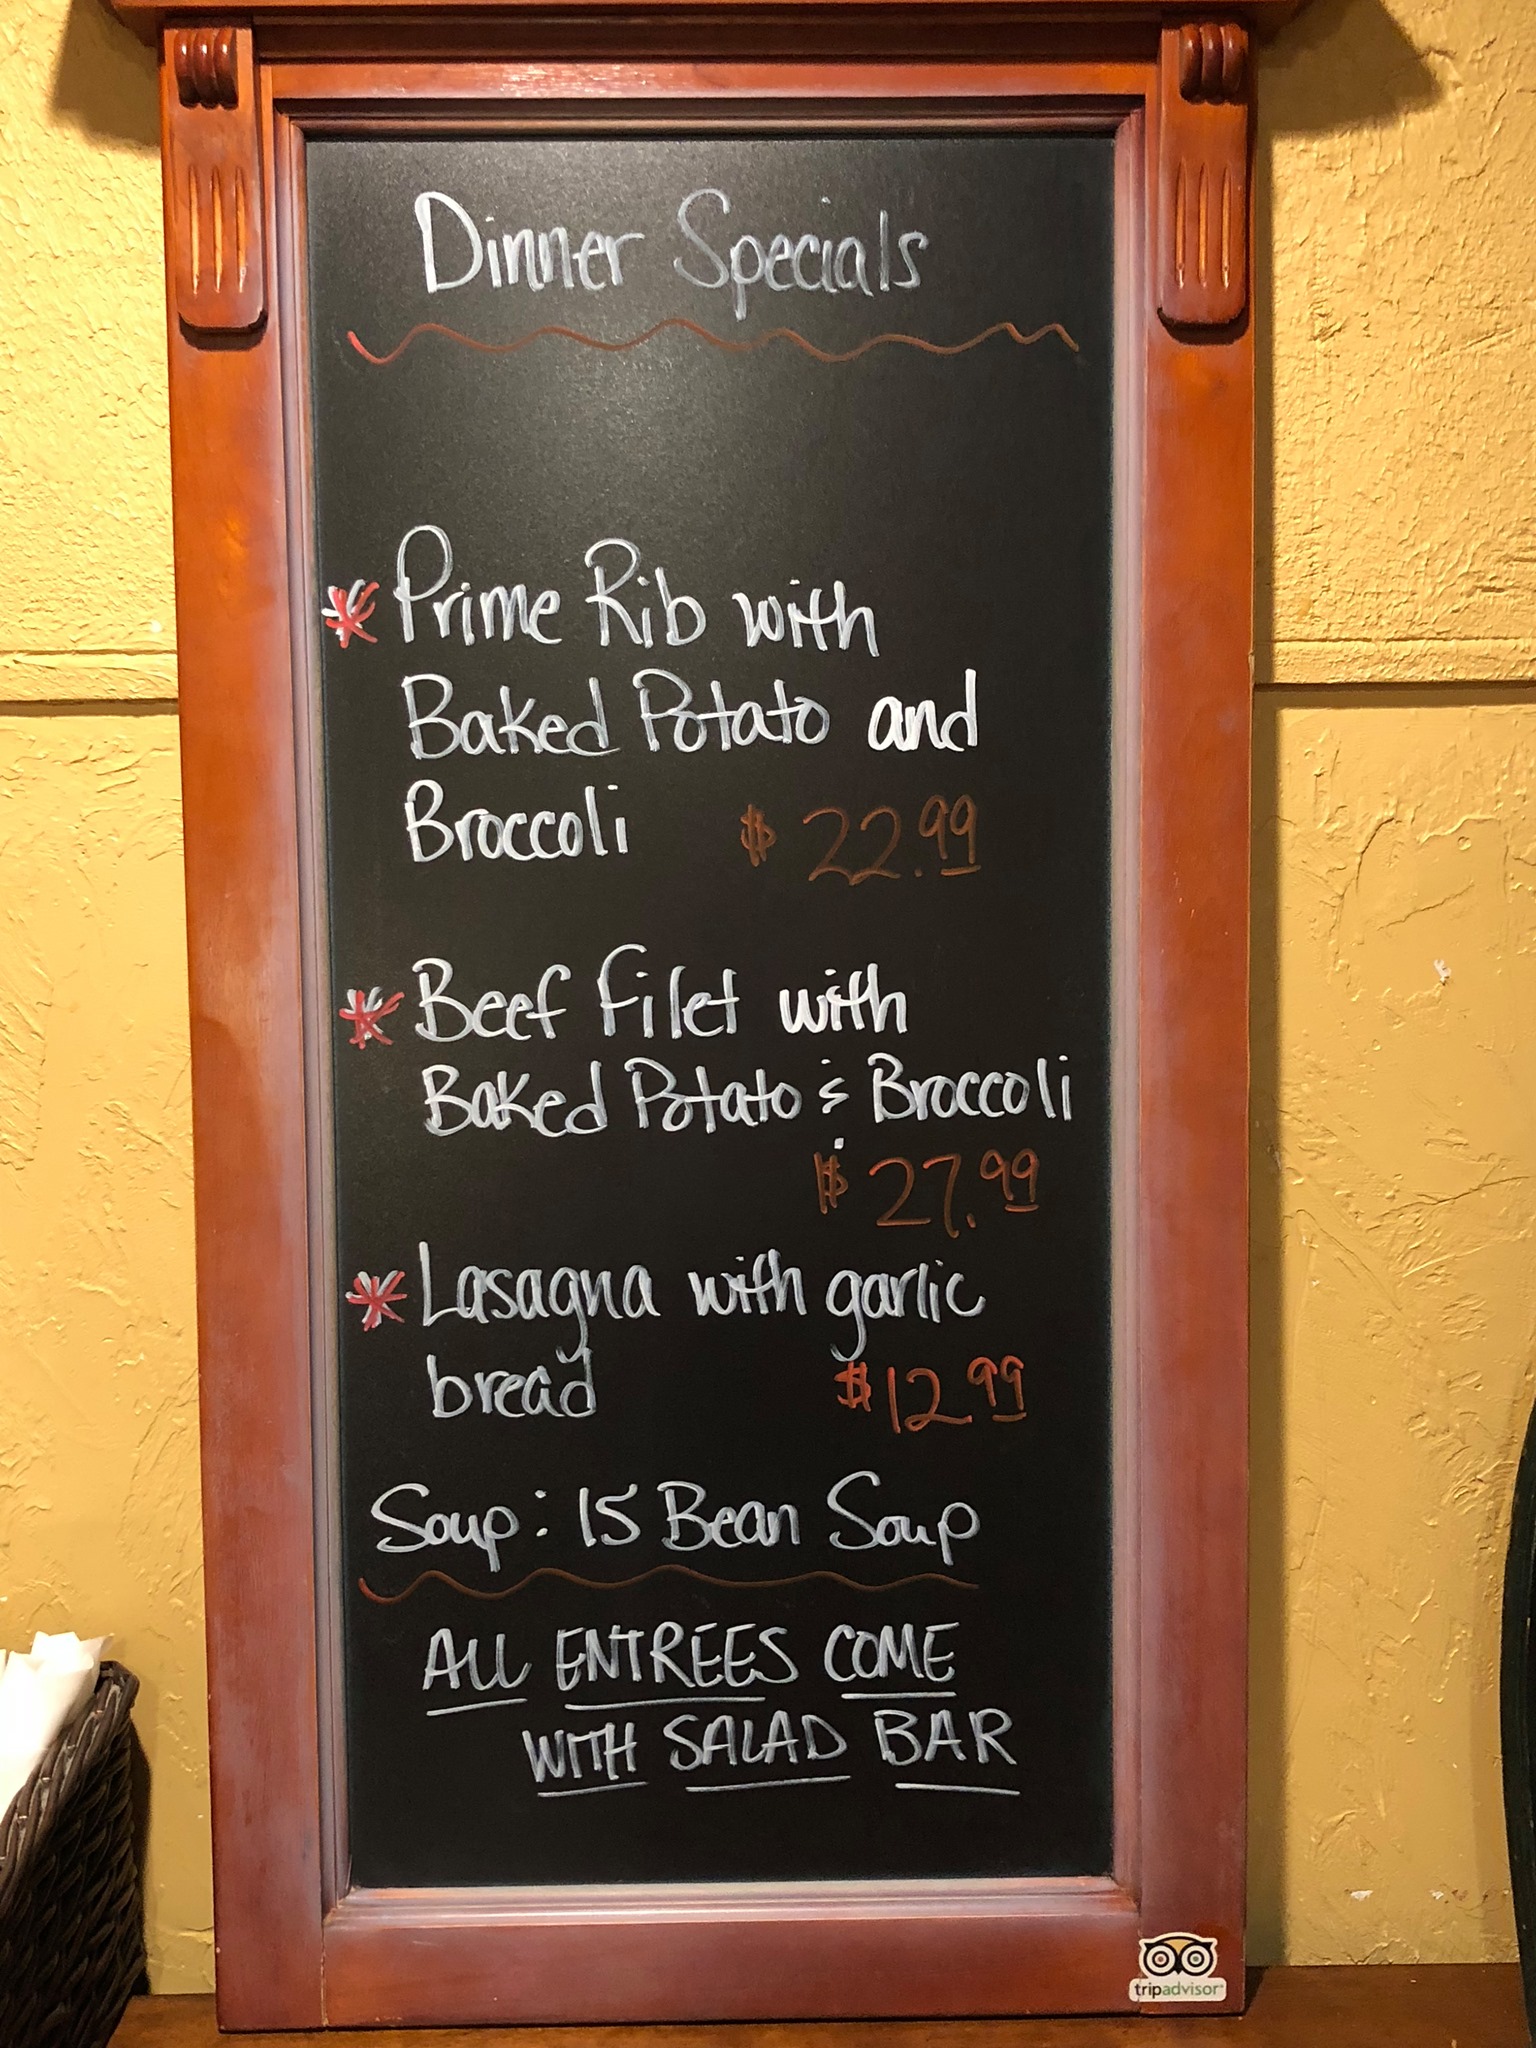 Dinner Specials
* Prime Rib with
Baked Potato and
Broccoli $22.99
* Beef Filet with
Baked Potato & Broccoli
$27.99
* Lasagna with garlic
bread $12.99
Soup: 15 Bean Soup
ALL ENTREES COME
WITH SALAD BAR
tripadvisor